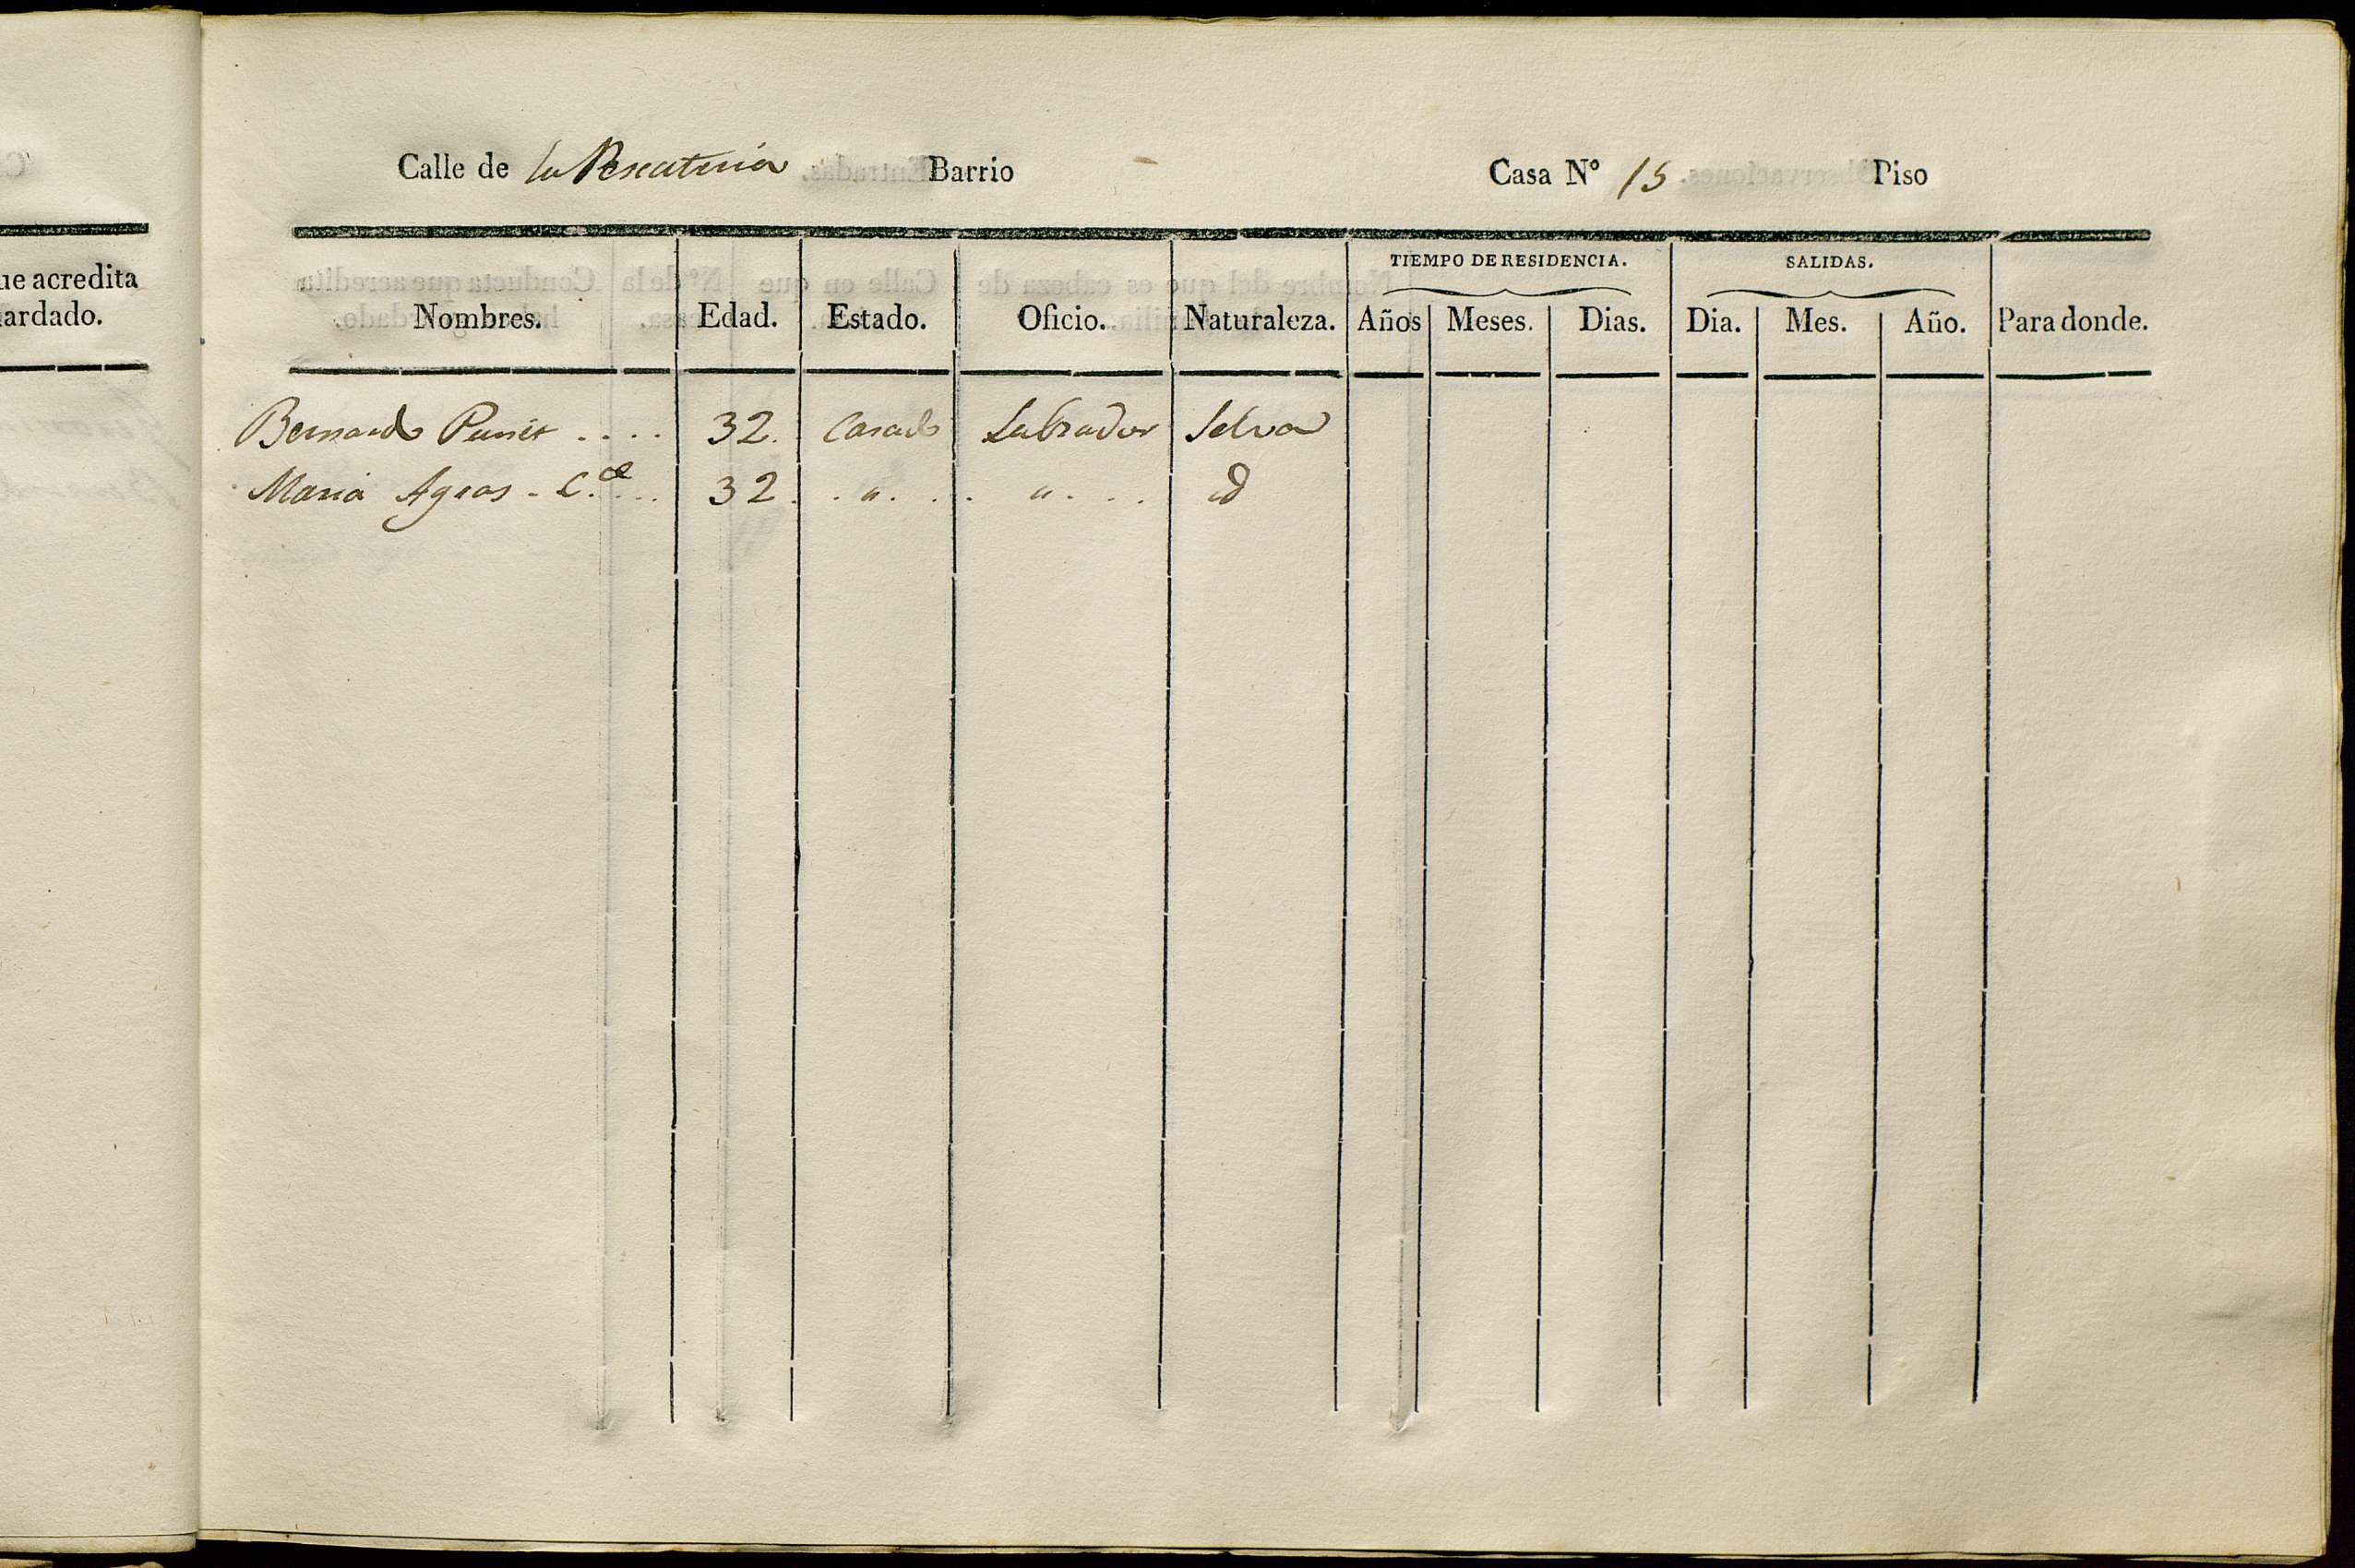 Calle de la Pescateria Barrio Casa Nº 15 Piso
ue acredita
ardado.
TIEMPO DE RESIDENCIA. SALIDAS.
Nombres. Edad. Estado. Oficio. Naturaleza. Años Meses. Dias. Dia. Mes. Año. Para donde.
Bernardo .... 32. Casado Labrador Selva
Maria Agras - C.. 32. . ". . . ". . . id